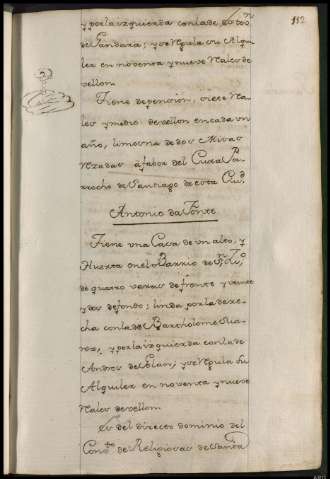 112
y por la izquierda con la de
de Gandara; y se Regula su Alqui
ler en noventa y nueve Reales de
vellon.
Tiene de pension, siete Rea
les y medio de vellon en cada un
año, limosna de dos Misas
Rezadas a favor del Cura Pa
rrocho de Santiago de esta Ciud.
Antonio da Fonte
Tiene una Casa de un alto, y
Huerta en el Barrio de
de quatro varas de frente y veinte
y dos de fondo; linda por la dere
cha con la de Bartholome Sua
rez, y por la izquierda con la de
Andres de y se Regula su
Alquiler en noventa y nueve
Reales de vellon
Es del directo dominio del
Conv.to de Religiosas de Santa